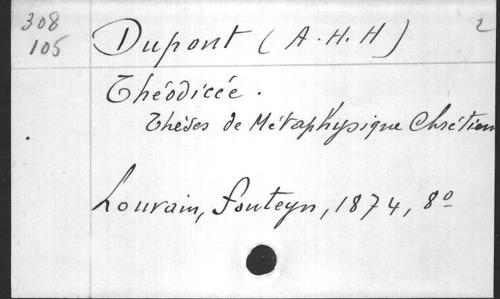 308
105
Dupont (A. H. H) 2
Théodicée.
Thèses de Métaphysique Chrétienn
Louvain, Fonteyn, 1874, 8º